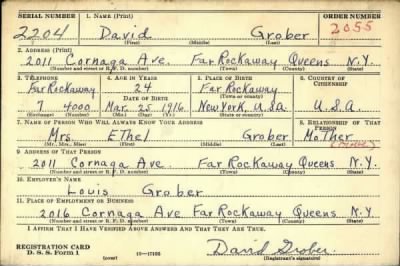 SERIAL NUMBER 1. NAME (Print) ORDER NUMBER
2204 David Grober 2055
(First) (Middle) (Last)
2. ADDRESS (Print)
2011 Cornaga Ave. Far Rockaway Queens N.Y.
(Number and street or R. F. D. number) (Town) (County) (State)
3. TELEPHONE 4. AGE IN YEARS 5. PLACE OF BIRTH 6. COUNTRY OF CITIZENSHIP
Far Rockaway 24 Far Rockaway
DATE OF BIRTH (Town or county)
7 4000 Mar. 25 1916 New York, U.S.A. U.S.A
(Exchange) (Number) (Mo.) (Day) (Yr.) (State or country)
7. NAME OF PERSON WHO WILL ALWAYS KNOW YOUR ADDRESS 8. RELATIONSHIP OF THAT PERSON
Mrs. Ethel Grober Mother
(Mr., Mrs., Miss) (First) (Middle) (Last)
9. ADDRESS OF THAT PERSON
2011 Cornaga Ave. Far Rockaway Queens N.Y.
(Number and street or R. F. D. number) (Town) (County) (State)
10. EMPLOYER'S NAME
Louis Grober
11. PLACE OF EMPLOYMENT OR BUSINESS
2016 Cornaga Ave Far Rockaway Queens N.Y.
(Number and street or R. F. D. number) (Town) (County) (State)
I AFFIRM THAT I HAVE VERIFIED ABOVE ANSWERS AND THAT THEY ARE TRUE.
REGISTRATION CARD
D. S. S. Form 1 (over) David Grober
(Registrant's signature)